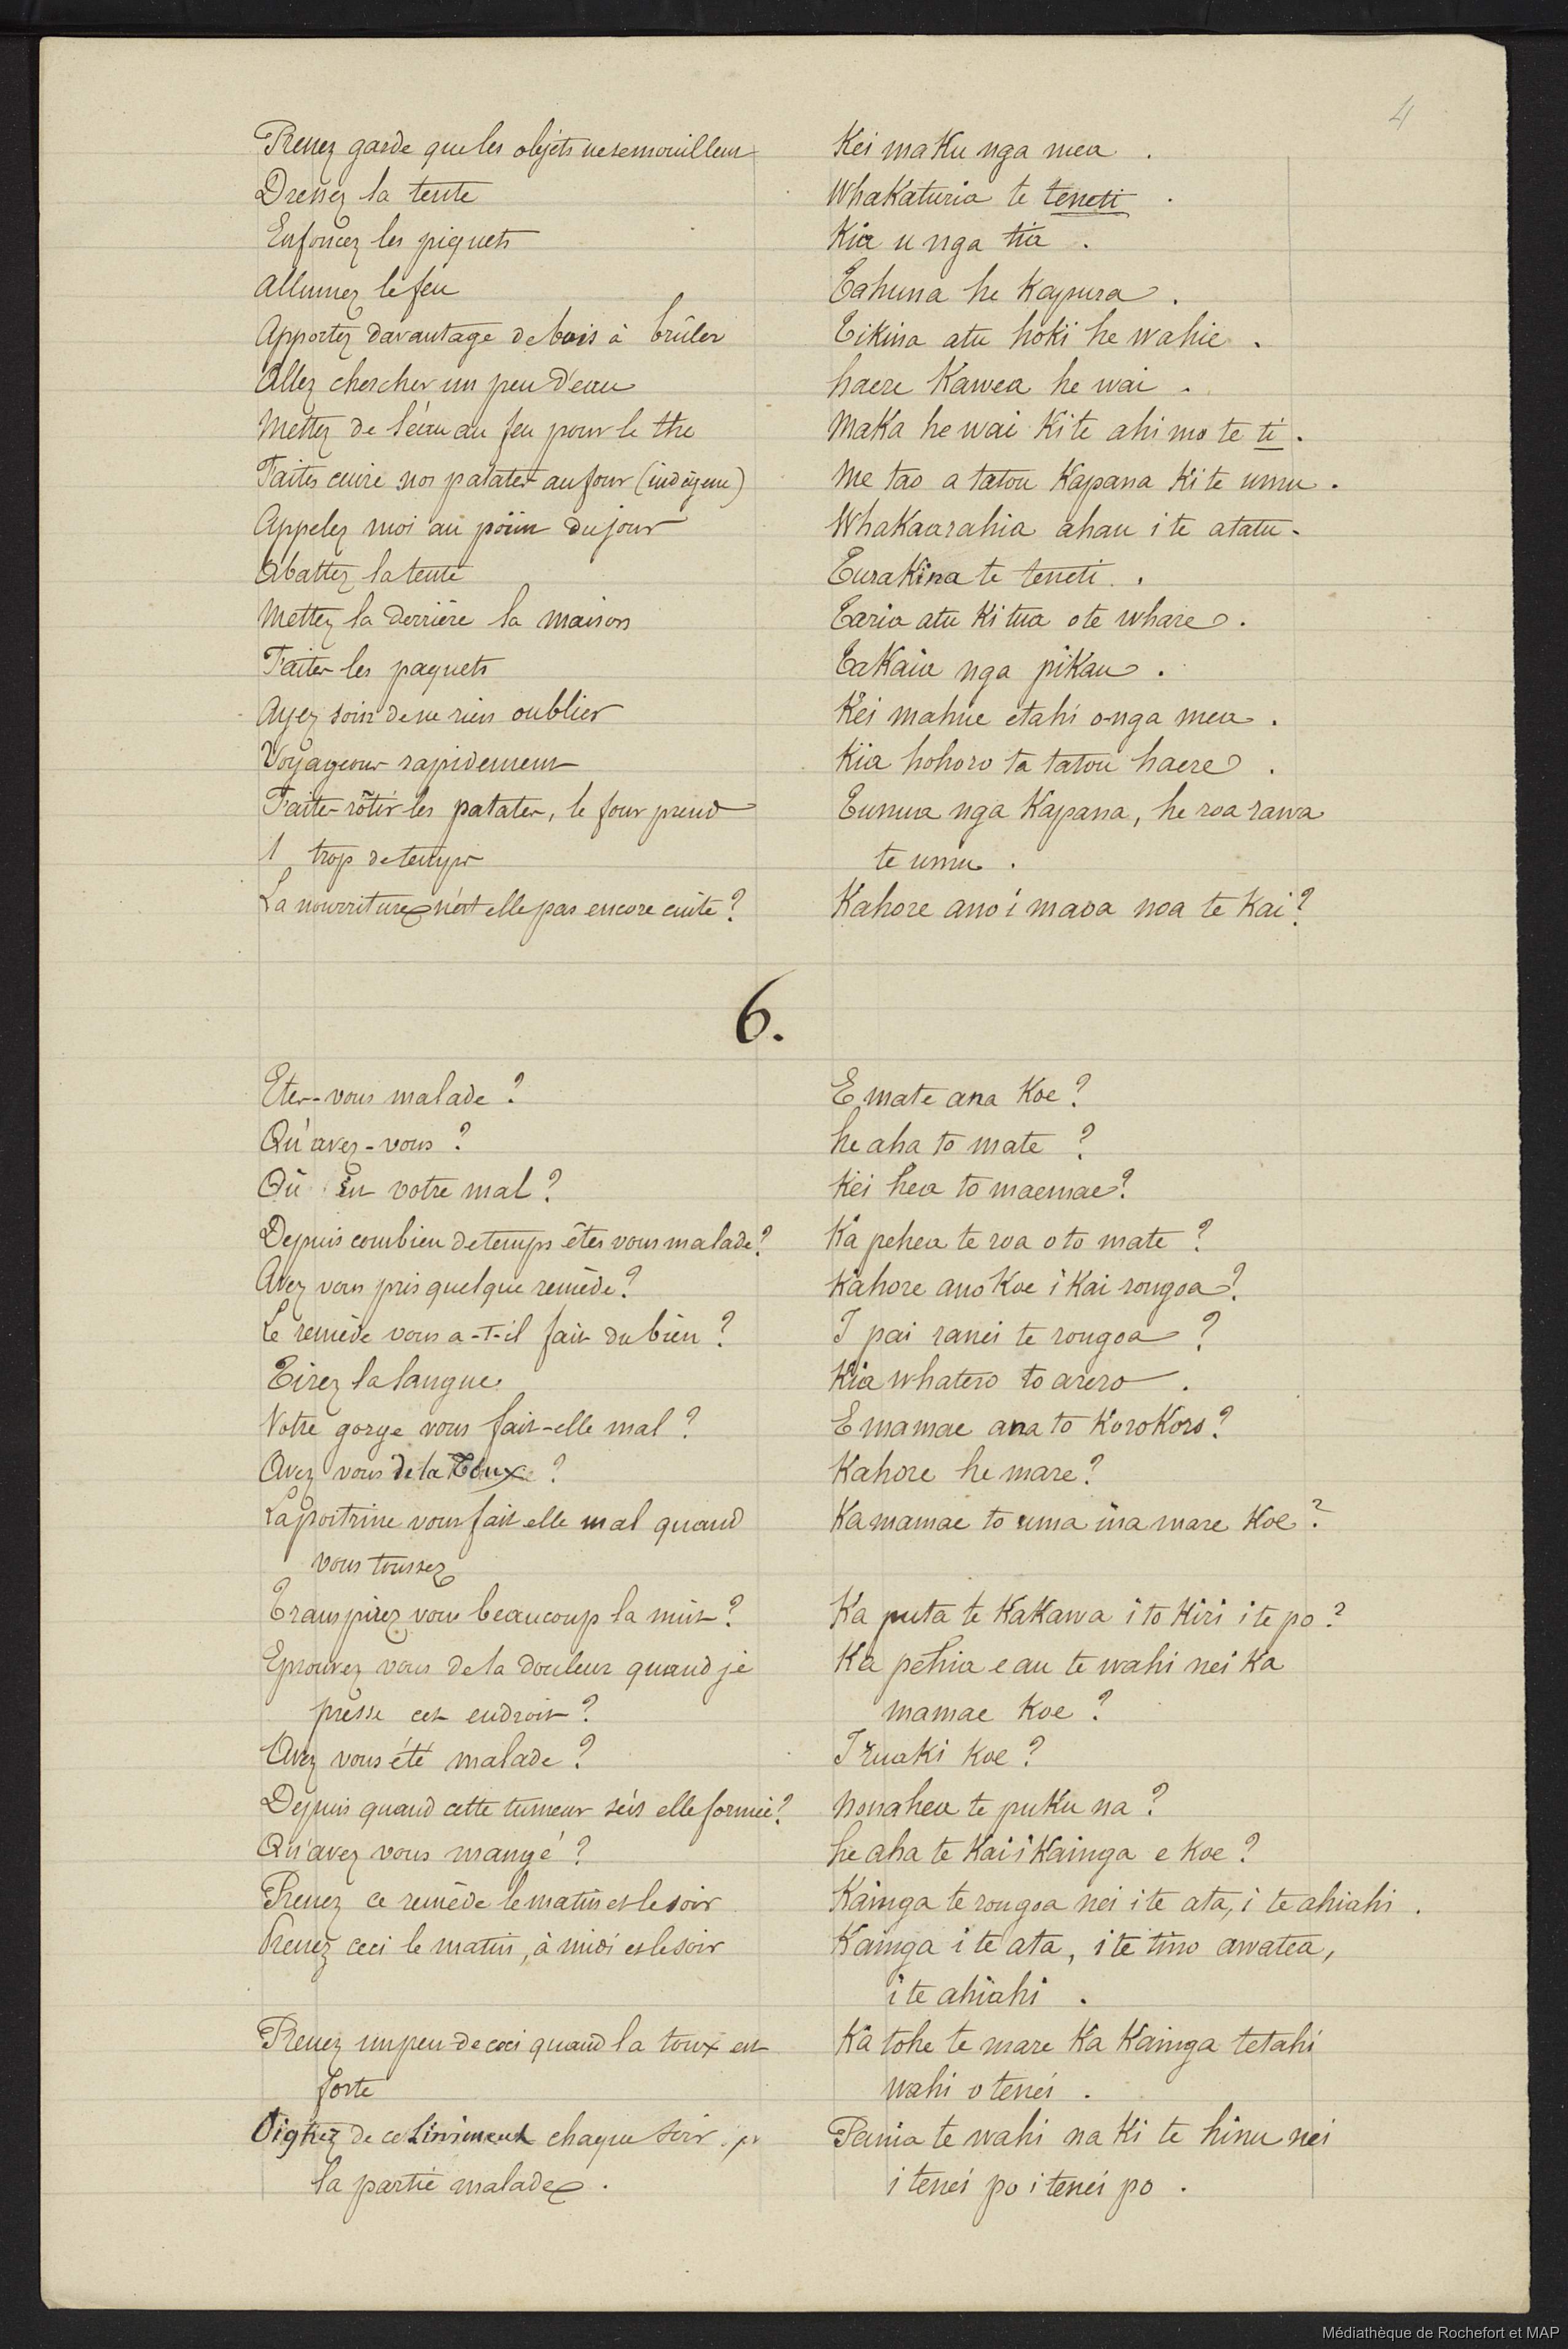 4
Prenez garde que les objets ne se mouillent Kei maKu nga mea .
Dressez la tente WhaKaturia te teneti .
Enfoncez les piquets Kia u nga tia .
Allumez le feu Tahuna he Kapura .
Apportez davantage de bois à brûler TiKina atu hoki he wahie .
Allez chercher un peu d'eau haere Kawea he wai .
Mettez de l'eau au feu pour le thé MaKa he wai Ki te ahi mo te ti .
Faites cuire nos patates au four (indigene) Me tao a tatou Kapana Ki te umu .
Appelez moi au point du jour WhaKaarahia ahau i te atatu .
Abattez la tente TuraKina te teneti .
Mettez la derrière la maison Taria atu Ki tua o te whare .
Faites les paquets TaKaia nga piKau .
Ayez soin de ne rien oublier Kei mahue etahi o nga mea .
Voyageons rapidement Kia hohoro ta tatou haere .
Faites rôtir les patates, le four prend Tunua nga Kapana, he roa rawa
trop de temps te umu .
La nourriture n'est elle pas encore cuite ? Kahore ano i maoa noa te Kai ?
6.
Etes-vous malade ? E mate ana Koe ?
Qu'avez-vous ? he aha to mate ?
Où est votre mal ? Kei hea to maemae ?
Depuis combien de temps êtes vous malade ? Ka pehea te roa o to mate ?
Avez vous pris quelque remède ? Kahore ano Koe i Kai rongoa ?
Le remède vous a-t-il fait du bien ? I pai ranei te rongoa ?
Tirez la langue Kia whatero to arero .
Votre gorge vous fait-elle mal ? E mamae ana to KoroKoro ?
Avez vous de la Toux ? Kahore he mare ?
La poitrine vous fait elle mal quand Ka mamae to uma ina mare Koe ?
vous toussez
Transpirez vous beaucoup la nuit ? Ka puta te KaKawa i to Kiri i te po ?
Eprouvez vous de la douleur quand je Ka pehia e au te wahi nei Ka
presse cet endroit ? mamae Koe ?
Avez vous été malade ? I ruaki Koe ?
Depuis quand cette tumeur s'est elle formée ? Nonahea te puKu na ?
Qu'avez vous mangé ? he aha te Kai i Kainga e Koe ?
Prenez ce remède le matin et le soir Kainga te rongoa nei i te ata, i te ahiahi .
Prenez ceci le matin, à midi et le soir Kainga i te ata, i te tino awatea,
i te ahiahi .
Prenez un peu de ceci quand la toux est Ka tohe te mare Ka Kainga tetahi
forte wahi o tenei .
Oignez de ce liniment chaque soir Pania te wahi na Ki te hinu nei
la partie malade . i tenei po i tenei po .
Médiathèque de Rochefort et MAP